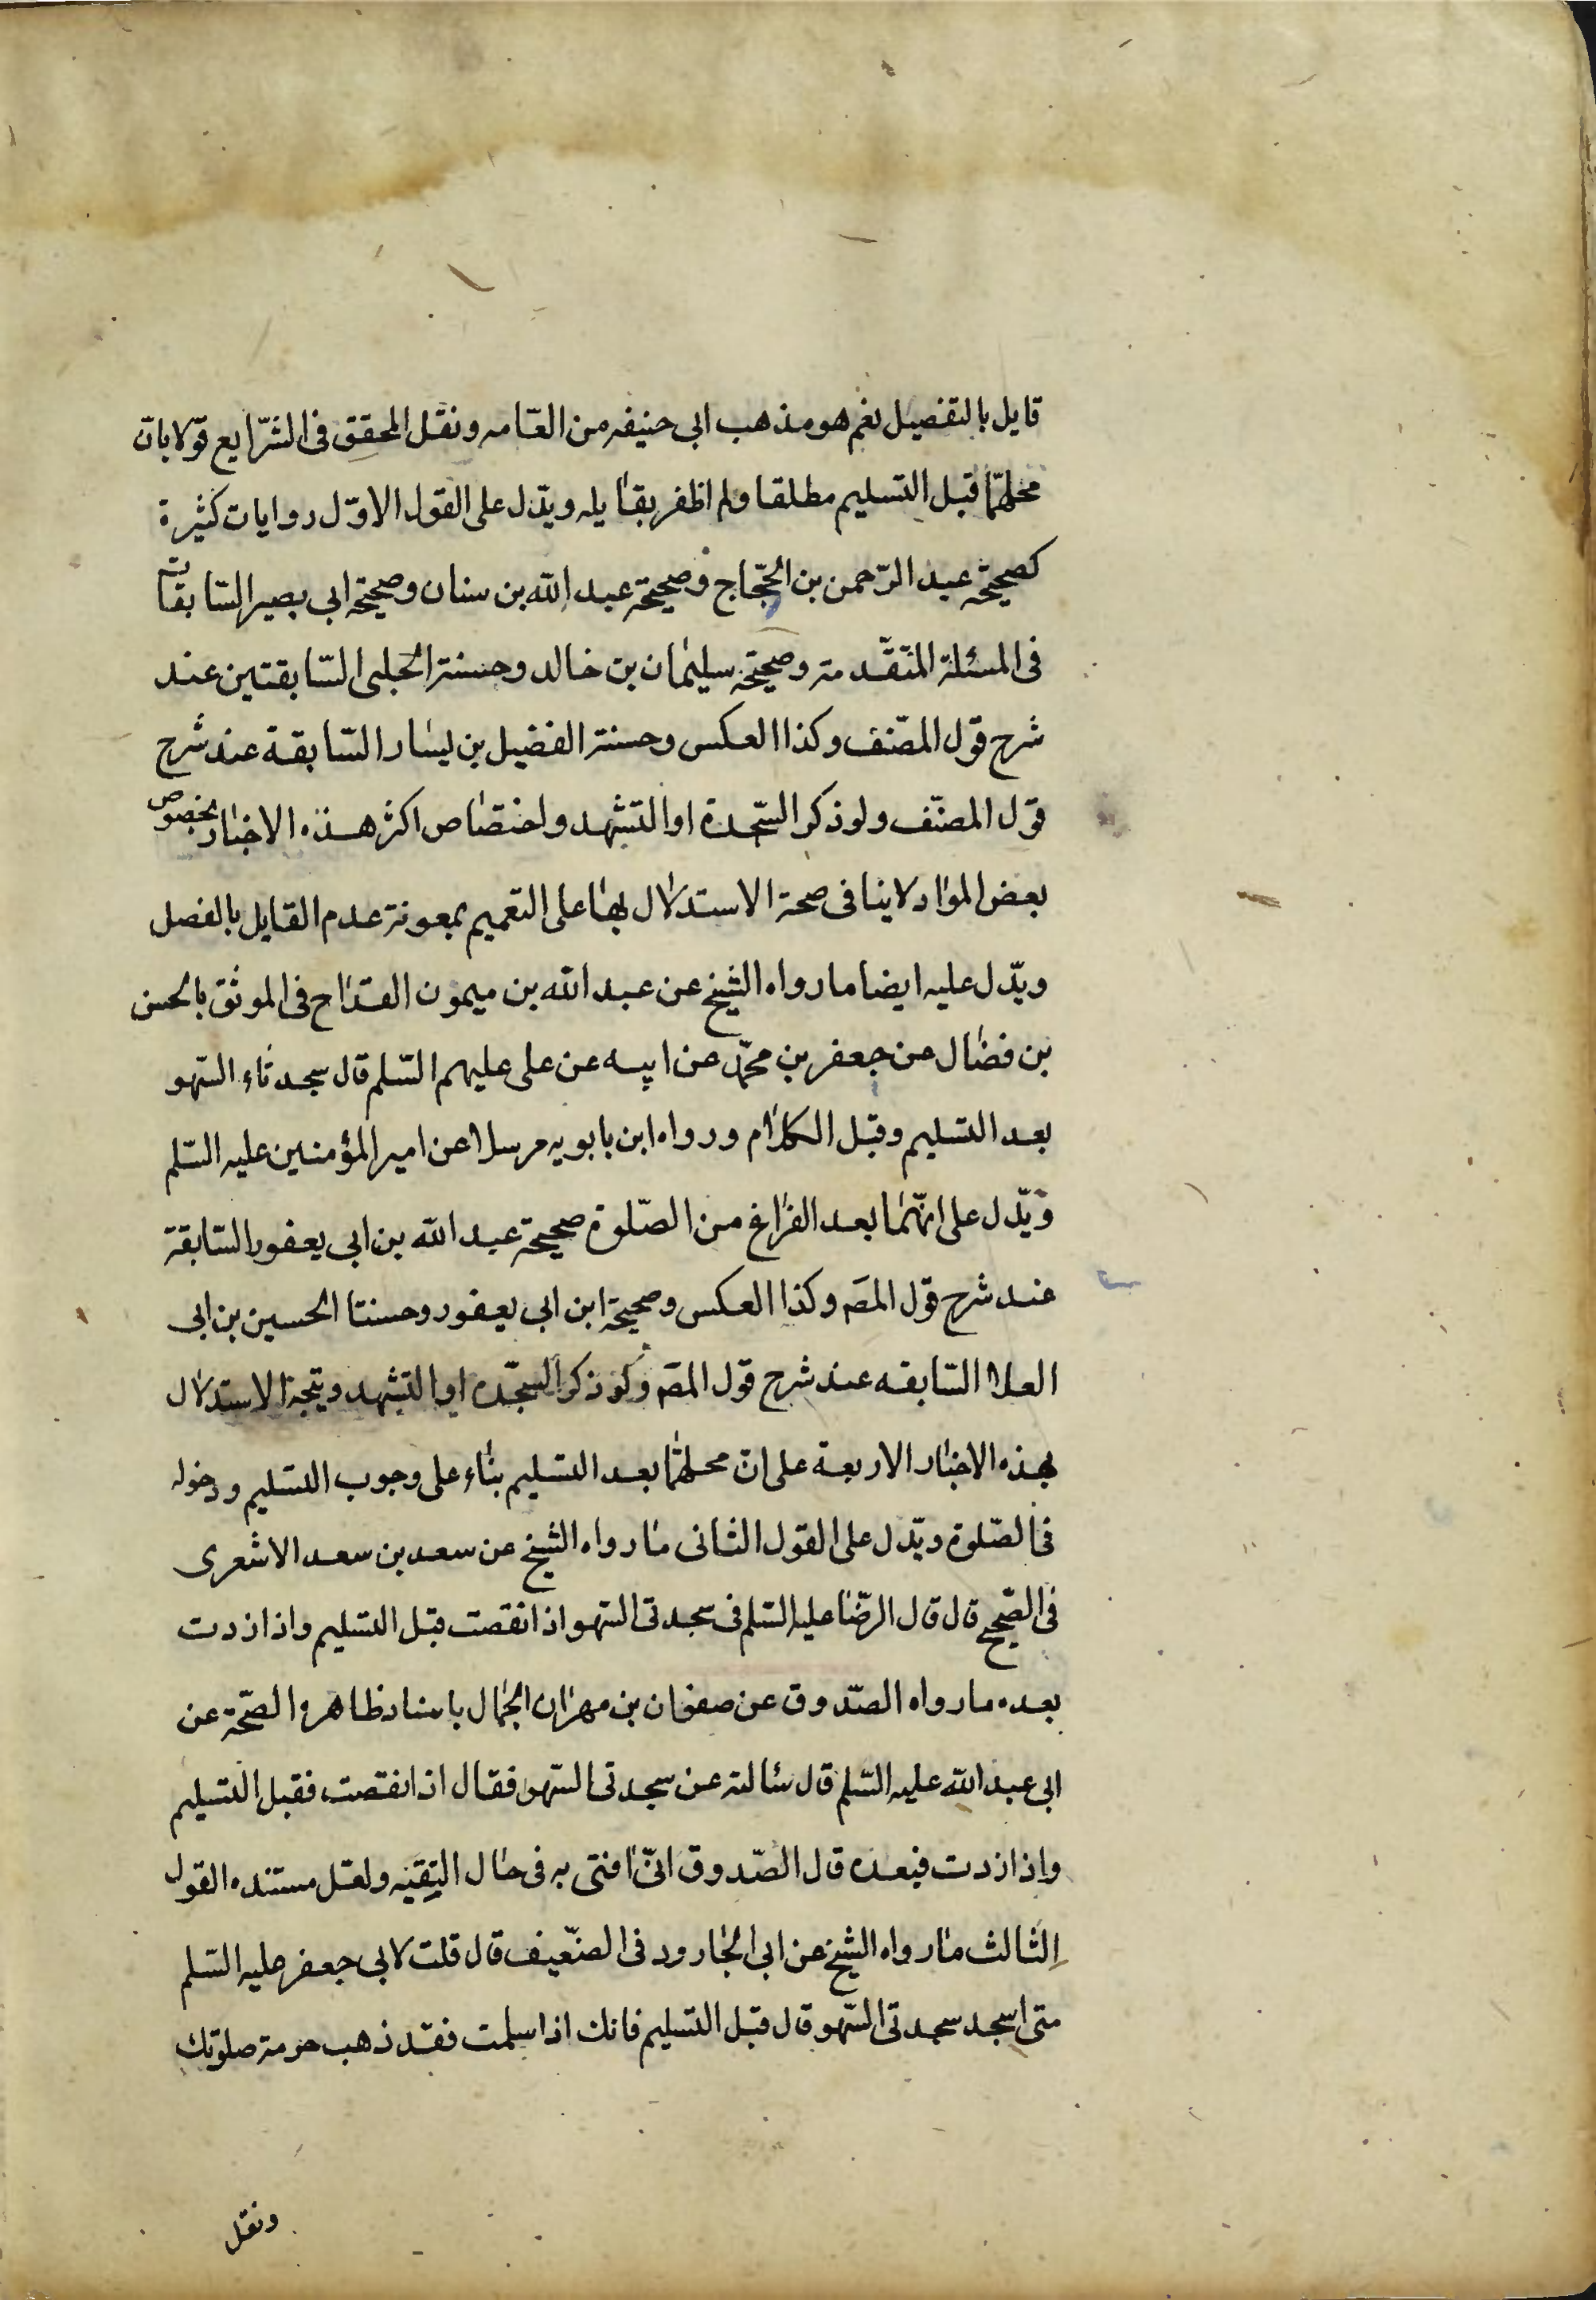 قايل بالتفصيل نعم هو مذهب ابى حنيفه من العامه ونقل المحقق فى الشرايع قولا بان
محلهما قبل التسليم مطلقا ولم اظفر بقايله ويدل على القول الاول روايات كثيرة
كصحيحة عبد الرحمن بن الحجاج وصحيحة عبد الله بن سنان وصحيحة ابى بصير السابقات
فى المسئلة المتقدمة وصحيحة سليمان بن خالد وحسنة الحلبى السابقتين عند
شرح قول المصنف وكذا العكس وحسنة الفضيل بن يسار السابقة عند شرح
قول المصنف ولو ذكر السجدة او التشهد واختصاص اكثر هذه الاخبار بخصوص
بعض المواد لا ينافى صحة الاستدلال بها على التعميم بمعونة عدم القايل بالفصل
ويدل عليه ايضا ما رواه الشيخ عن عبد الله بن ميمون القداح فى الموثق بالحسن
بن فضال عن جعفر بن محمد عن ابيه عن على عليهم السلم قال سجدتاء السهو
بعد التسليم وقبل الكلام ورواه ابن بابويه مرسلا عن امير المؤمنين عليه السلم
ويدل على انهما بعد الفراغ من الصلوة صحيحة عبد الله بن ابى يعفور السابقة
عند شرح قول المصه وكذا العكس وصحيحة ابن ابى يعفور وحسنتا الحسين بن ابى
العلا السابقه عند شرح قول المصه ولو ذكر السجده او التشهد ويتجه الاستدلال
بهذه الاخبار الاربعة على ان محلهما بعد التسليم بناء على وجوب التسليم ودخوله
فى الصلوة ويدل على القول الثانى ما رواه الشيخ عن سعد بن سعد الاشعرى
فى الصحيح قال قال الرضا عليه السلم فى سجدتى السهو اذا نقصت قبل التسليم واذا زدت
بعده ما رواه الصدوق عن صفوان بن مهران الجمال باسناد ظاهره الصحة عن
ابى عبد الله عليه السلم قال سئالته عن سجدتى السهو فقال اذا نقصت فقبل التسليم
واذا زدت فبعده قال الصدوق انى افتى به فى حال التقيه ولعل مستنده القول
الثالث ما رواه الشيخ عن ابى الجارود فى الضعيف قال قلت لابى جعفر عليه السلم
متى اسجد سجدتى السهو قال قبل التسليم فانك اذا سلمت فقد ذهب حرمة صلوتك
ونقل